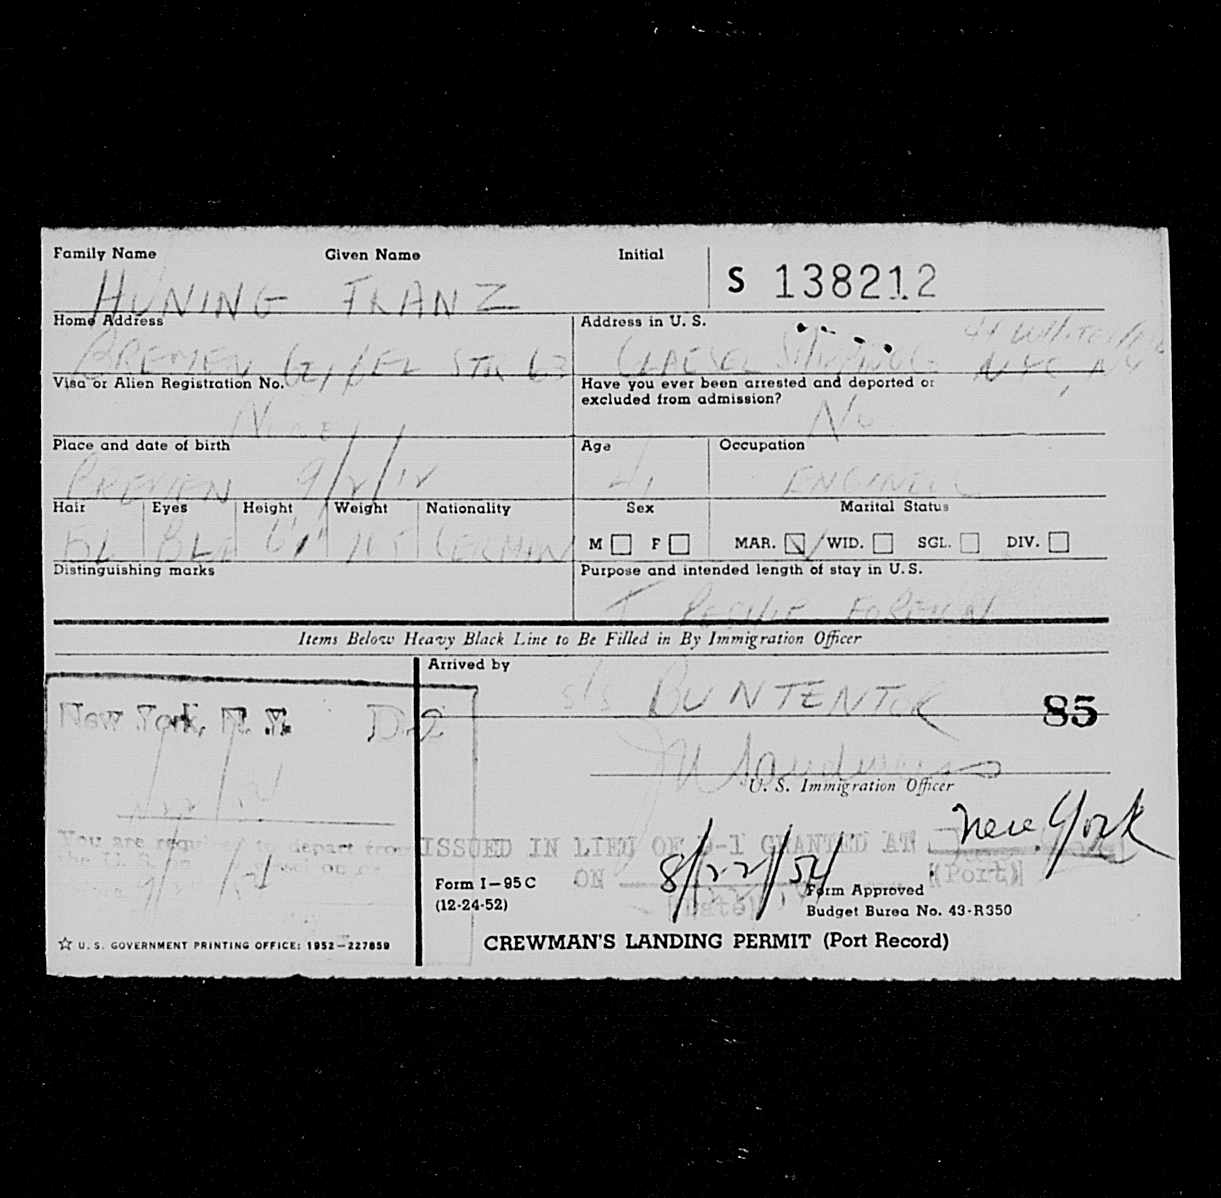 Family Name Given Name Initial
HUNING FRANZ S 138212
Home Address Address in U. S.
BREMEN STR 63 41 WHITEHALL
NYC, NY
Visa or Alien Registration No. Have you ever been arrested and deported or
excluded from admission?
None No
Place and date of birth Age Occupation
BREMEN 9/2/12 41 ENGINEER
Hair Eyes Height Weight Nationality Sex Marital Status
BL BLE 6'1" 165 GERMAN M F MAR. WID. SGL. DIV.
Distinguishing marks Purpose and intended length of stay in U. S.
T RESHIP FOREIGN
Items Below Heavy Black Line to Be Filled in By Immigration Officer
Arrived by
s/s BUNTENTOR 85
New York, N. Y. D-2
U. S. Immigration Officer
You are required to depart from
the U. S.
ISSUED IN LIEU OF D-1 GRANTED AT New York
(Port)
ON 8/22/54
(Date)
Form I-95 C
(12-24-52)
Form Approved
Budget Burea No. 43-R350
☆ U. S. GOVERNMENT PRINTING OFFICE: 1952-227859
CREWMAN'S LANDING PERMIT (Port Record)